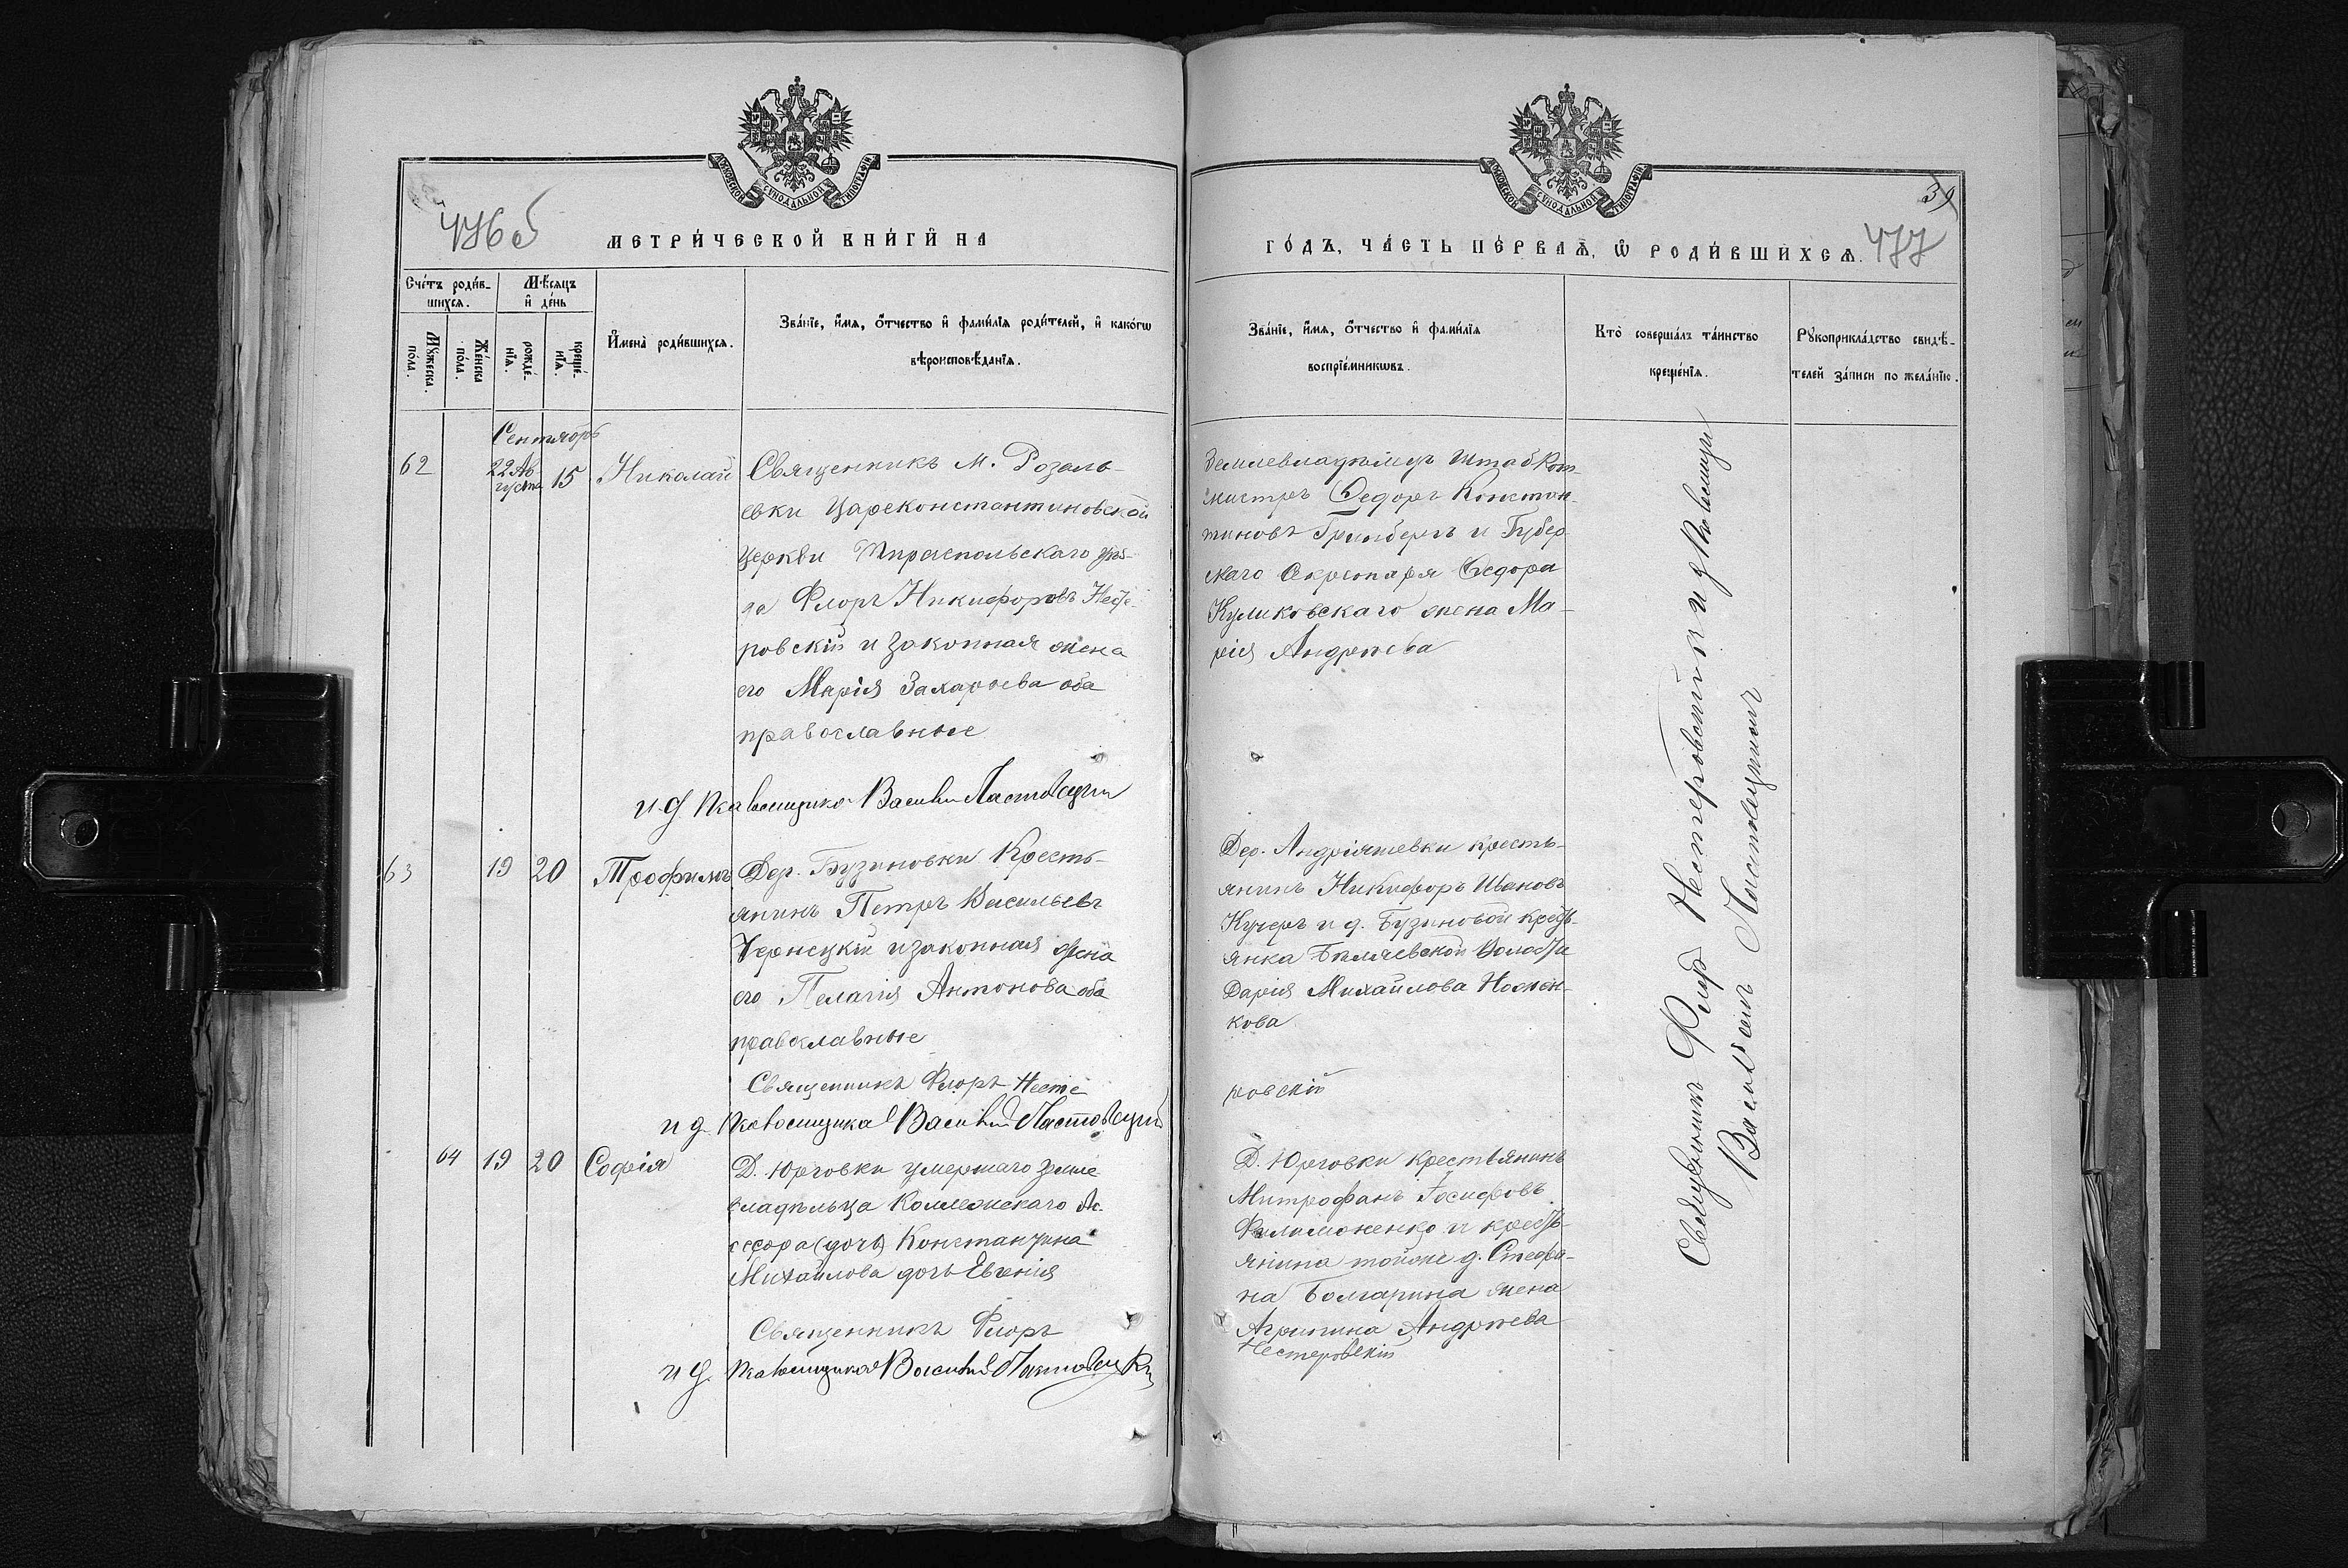 МОСКОВСКОЙ СѴНОДАЛЬНОЙ ТИПОГРАФІИ
476 об
МЕТРИ́ЧЕСКОЙ КНИ́ГИ НА
Сче́тъ роди́в-
шихсѧ.
Мѣ́сѧцъ
и де́нь
Мꙋ́жеска по́ла.
Же́нска по́ла.
рожде́-
нїѧ.
креще́-
нїѧ.
И҆мена̀ роди́вшихсѧ.
Зва́нїе, и҆́мѧ, ѻ҆́тчество и҆ фами́лїѧ роди́телей, и҆ како́гѡ
вѣроисповѣ́данїѧ.
Сентябрь
62
22 Ав-
густа
15
Николай
Священникъ м. Розаль-
евки Цареконстантиновской
церкви Тираспольскаго уѣз-
да Флоръ Никифоровъ Несте-
ровскій и законная жена
его Марія Захарьева оба
православные
и д псаломщика Василій Ластовецкій
63
19
20
Трофимъ
Дер. Бузиновки Кресть-
янинъ Петръ Васильевъ
Чернецкій и законная жена
его Пелагія Антонова оба
православные
Священникъ Флоръ Несте
и д. псаломщика Василій Ластовецкій
64
19
20
Софія
Д. Юрговки умершаго земле
владѣльца Коллежскаго Ас.
сесора (дочь) Константина
Михайлова дочь Евгенія
Священникъ Флоръ
и д. псаломщика Василій Ластовецкій
МОСКОВСКОЙ СѴНОДАЛЬНОЙ ТИПОГРАФІИ
39
ГО́ДЪ, ЧА́СТЬ ПЕ́РВАѦ, Ѡ҆ РОДИ́ВШИХСѦ.
477
Зва́нїе, и҆́мѧ, ѻ҆́тчество и҆ фами́лїѧ
воспрїе́мникѡвъ.
Кто̀ соверша́лъ та́инство
креще́нїѧ.
Рꙋкоприкла́дство свидѣ́-
телей за́писи по жела́нїю.
Землевладѣлецъ Штабъ Рот-
мистръ Федоръ Констан-
тиновъ Гринбергъ и Губер-
скаго Секретаря Федора
Куликовскаго жена Ма-
рія Андреева
Дер. Андріяшевки кресть-
янинъ Никифоръ Ивановъ
Кучеръ и д. Бузиновой кресть-
янка Бѣляевской Волости
Дарія Михайлова Ножен-
кова
ровскій
Д. Юрговки крестьянинъ
Митрофанъ Іосифовъ
Филимоненко и кресть-
янина тойже д. Стефа-
на Болгарина жена
Агрипина Андреева
Нестеровскій
Священникъ Флоръ Нестеровскій съ и д псаломщика
Василіемъ Ластовецкимъ